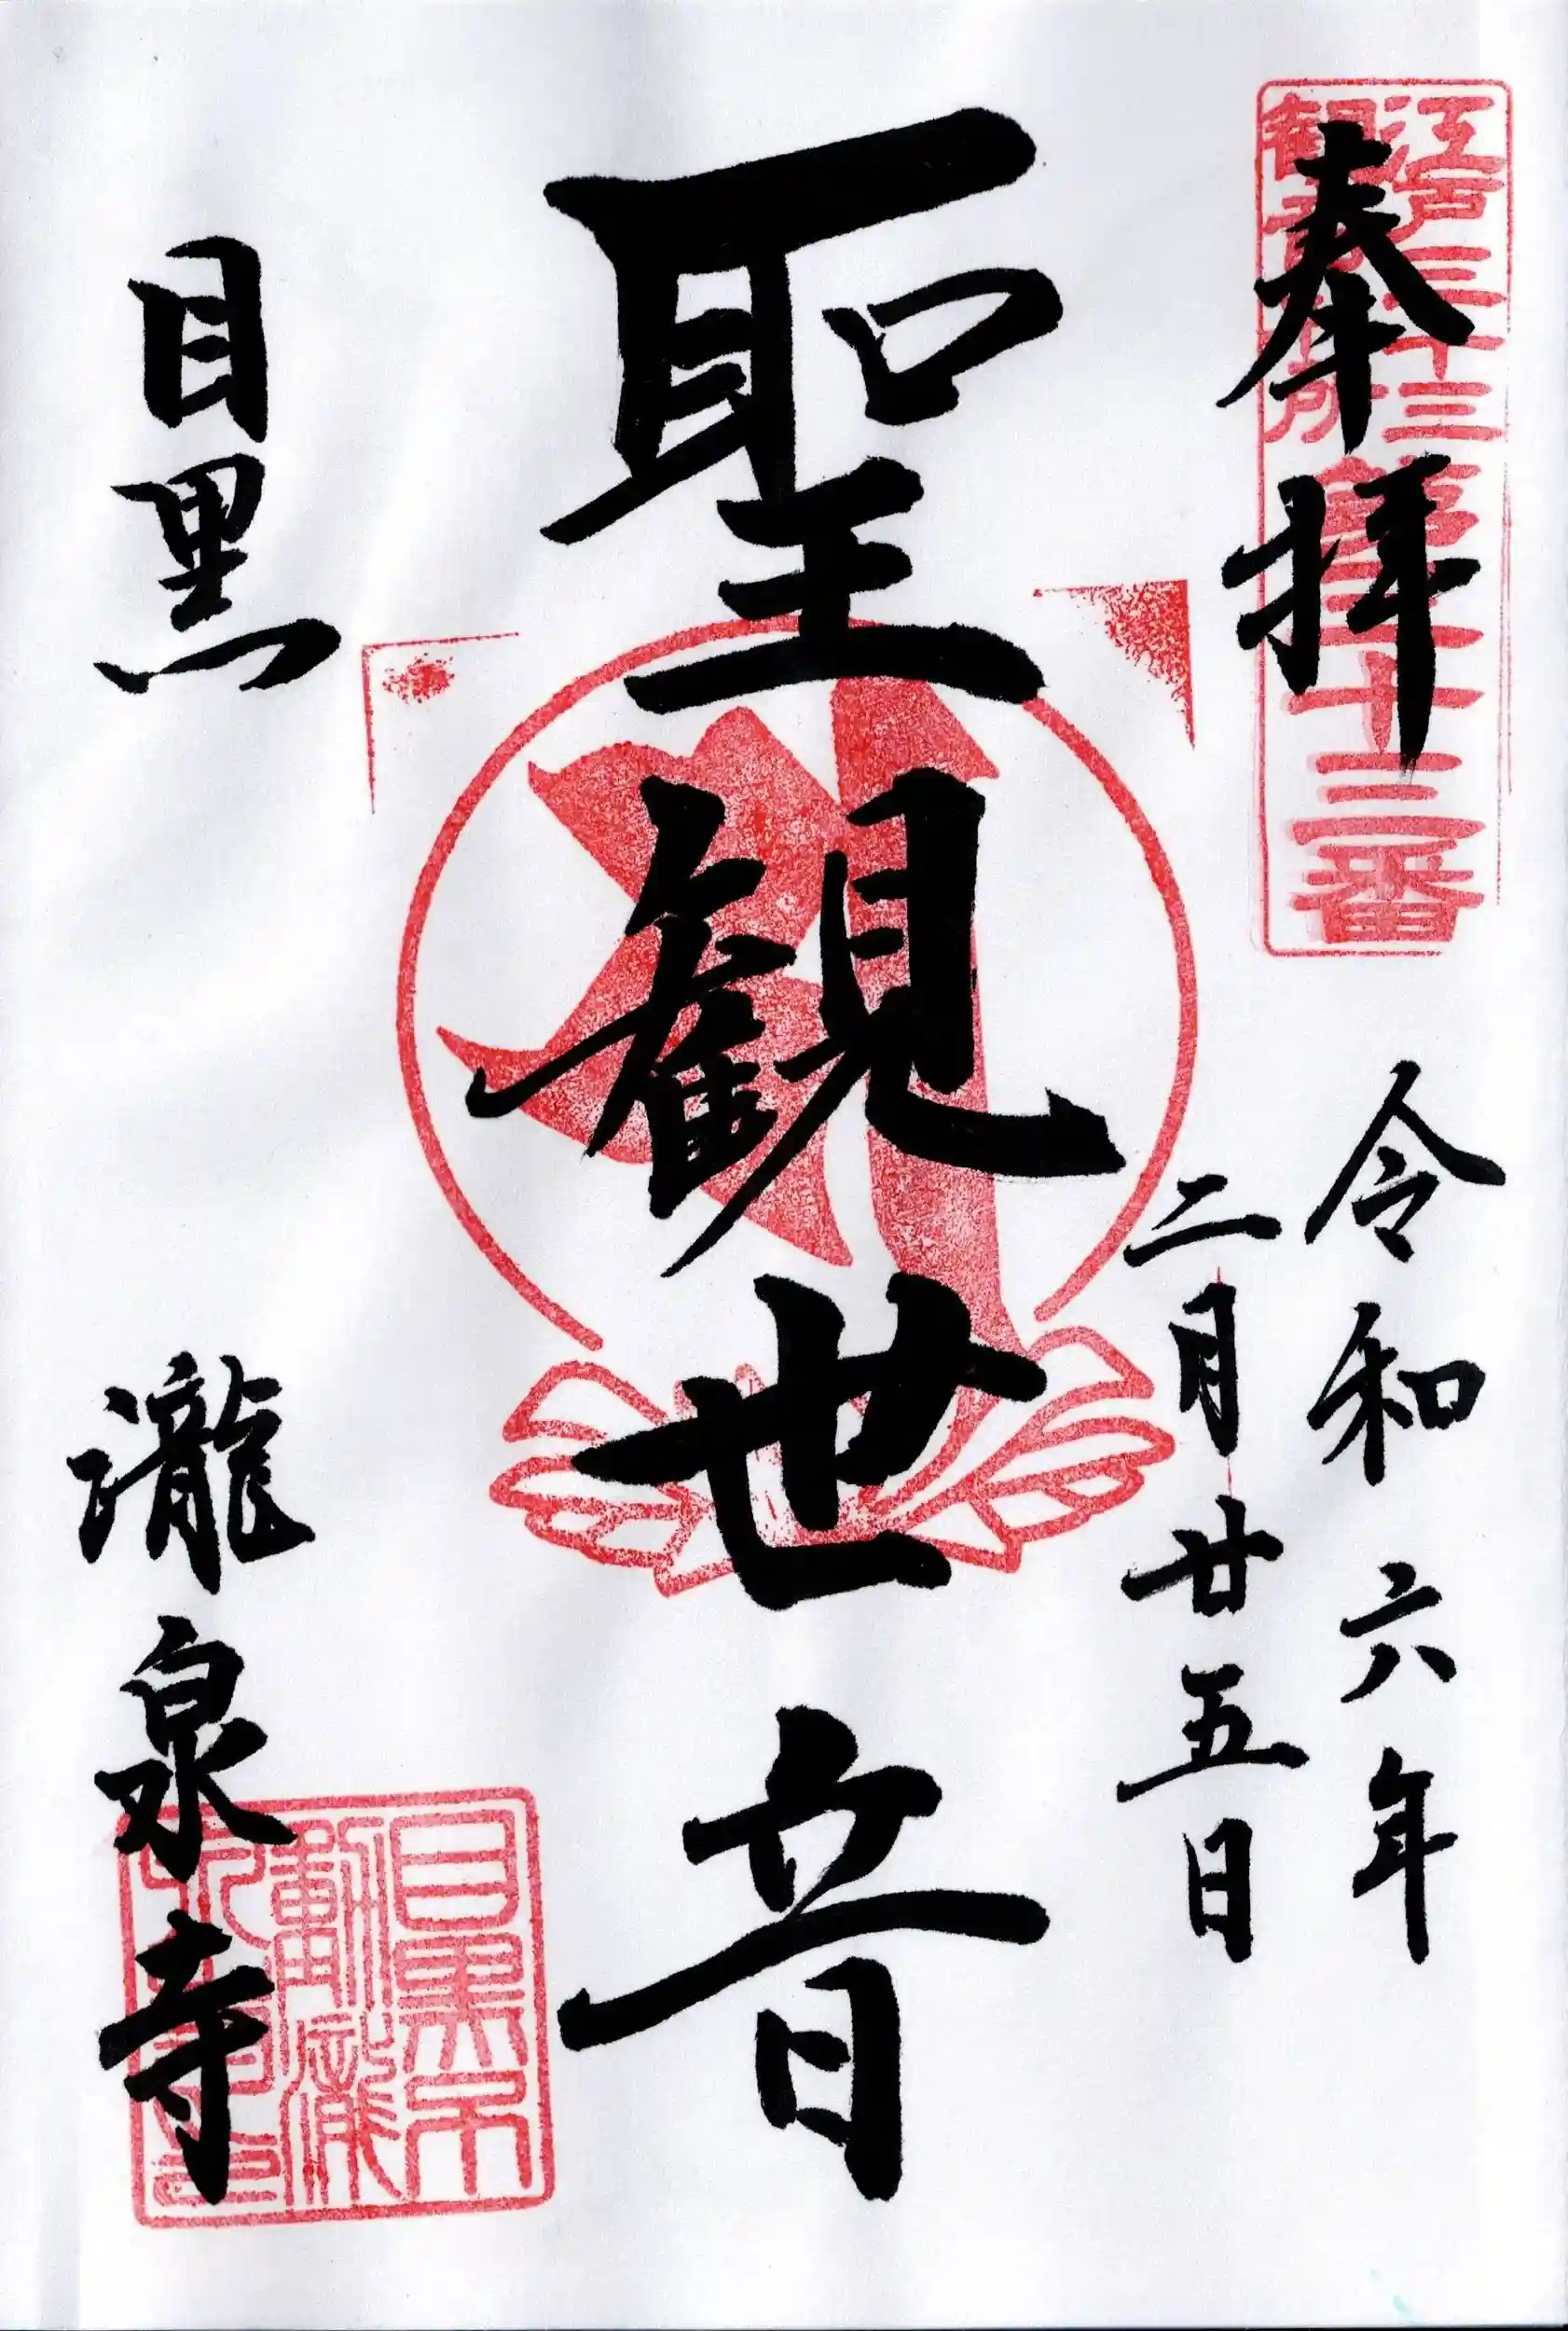 奉拝
江戸三十三
観音札所
第三十三番
令和六年
二月廿五日
聖観世音
目黒
瀧泉寺